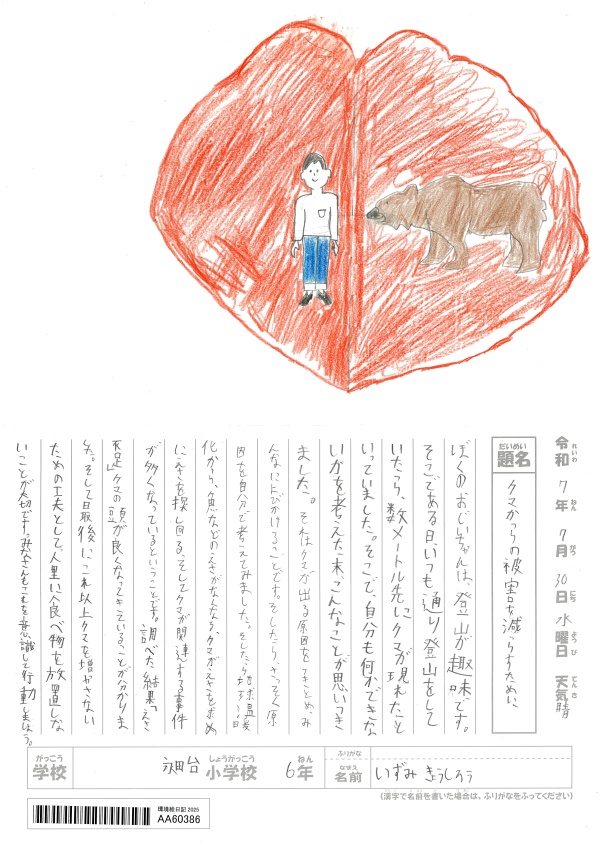 令和 7年 7月 30日 水曜日 天気 晴
れいわ ねん がつ にち ようび てんき
だいめい
題名
クマからの被害を減らすために
ぼくのおじいちゃんは、登山が趣味です。
そこである日、いつも通り登山をして
いたら、数メートル先にクマが現れたと
いっていました。そこで、自分も何かできな
いかを考えた末、こんなことが思いつき
ました。それはクマが出る原因をつきとめ、み
んなによびかけることです。そしたらさっそく原
因を自分で考えてみました。そしたら地球温暖
化から、魚などのえさがなくなり、クマがえさをもとめ
にえさを探し回る、そしてクマが関連する事件
が多くなっているということです。調べた結果「えさ
不足」「クマの頭が良くなってきている」ことが分かりま
した。そして最後に、これ以上クマを増やさない
ための工夫として、人里に食べ物を放置しな
いことが大切です。みなさんもこれを意識して行動しましょう。
がっこう
学校
しょうがっこう
小学校
ねん
6年
ふりがな
なまえ
名前
いずみ きょうしろう
(漢字で名前を書いた場合は、ふりがなをふってください)
環境絵日記 2025
AA60386